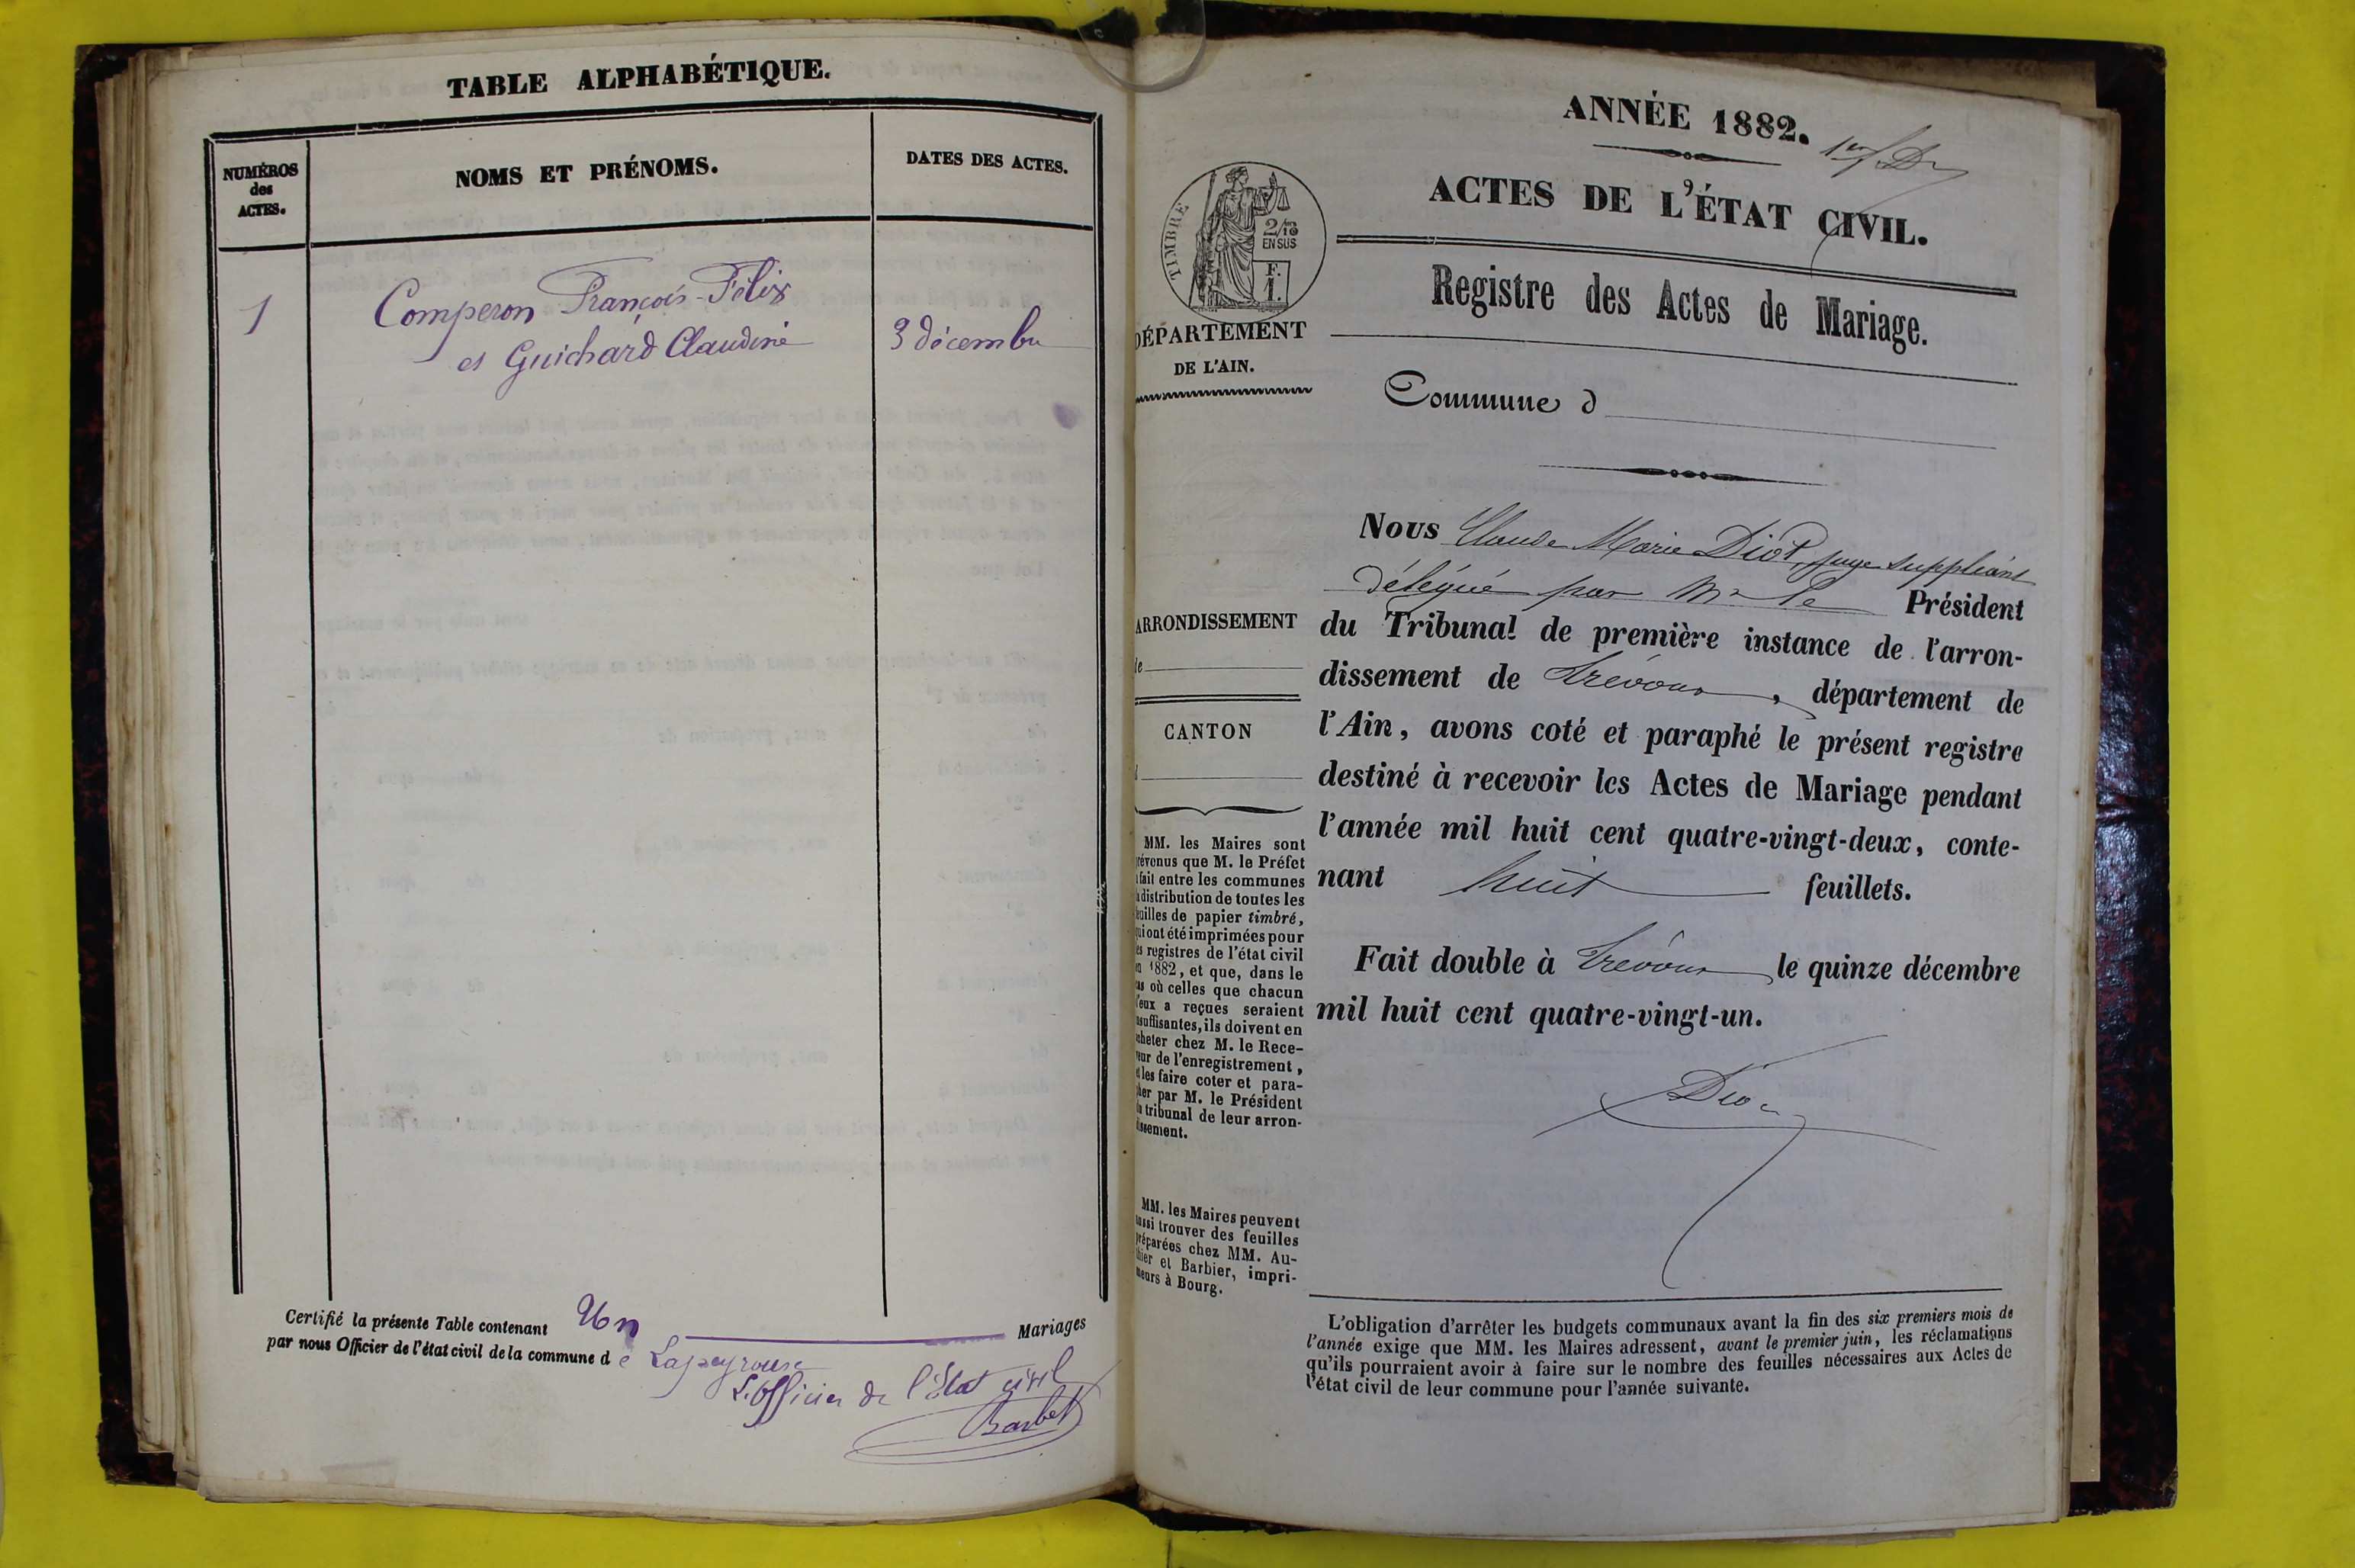 TABLE ALPHABÉTIQUE.
NUMÉROS
des
ACTES.
NOMS ET PRÉNOMS.
DATES DES ACTES.
1
Comperon François-Félix
et Guichard Claudine
3 décembre
Certifié la présente Table contenant Un Mariages
par nous Officier de l'état civil de la commune de Lapeyrouse
L'officier de l'Etat civil
Barbet
ANNÉE 1882.
ACTES DE L'ÉTAT CIVIL.
TIMBRE
2/10
EN SUS
F.
1.
Registre des Actes de Mariage.
DÉPARTEMENT
DE L'AIN.
Commune d
Nous Claude Marie Diot, juge suppléant
délégué par Mr le Président
du Tribunal de première instance de l'arron-
dissement de Trévoux, département de
l'Ain, avons coté et paraphé le présent registre
destiné à recevoir les Actes de Mariage pendant
l'année mil huit cent quatre-vingt-deux, conte-
nant huit feuillets.
Fait double à Trévoux le quinze décembre
mil huit cent quatre-vingt-un.
Diot
ARRONDISSEMENT
de
CANTON
d
MM. les Maires sont
prévenus que M. le Préfet
a fait entre les communes
la distribution de toutes les
feuilles de papier timbré,
qui ont été imprimées pour
les registres de l'état civil
en 1882, et que, dans le
cas où celles que chacun
d'eux a reçues seraient
insuffisantes, ils doivent en
acheter chez M. le Rece-
veur de l'enregistrement,
et les faire coter et para-
pher par M. le Président
du tribunal de leur arron-
dissement.
MM. les Maires peuvent
aussi trouver des feuilles
préparées chez MM. Au-
thier et Barbier, impri-
meurs à Bourg.
L'obligation d'arrêter les budgets communaux avant la fin des six premiers mois de
l'année exige que MM. les Maires adressent, avant le premier juin, les réclamations
qu'ils pourraient avoir à faire sur le nombre des feuilles nécessaires aux Actes de
l'état civil de leur commune pour l'année suivante.